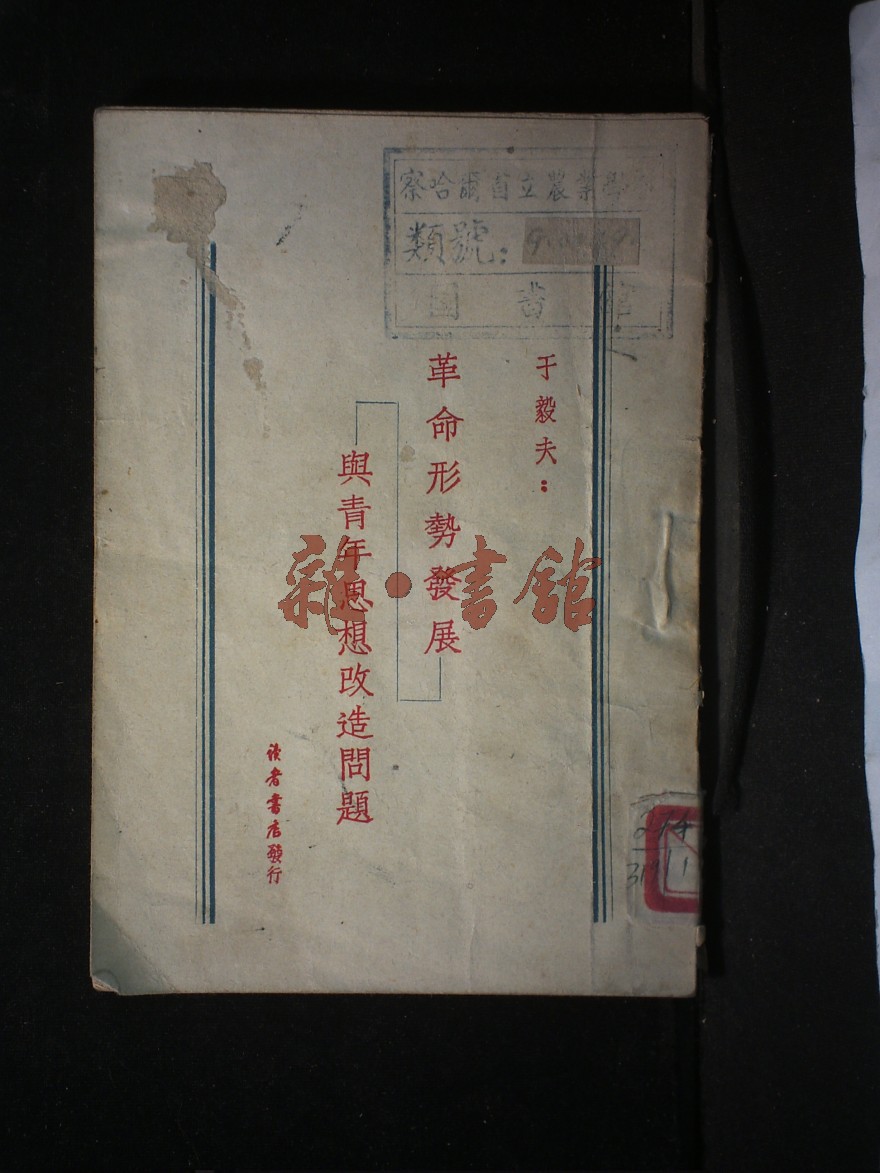 察哈爾省立農業學
類號：
圖書館
于毅夫：
革命形勢發展
與青年思想改造問題
讀者書店發行
雜·書館
274
319/1